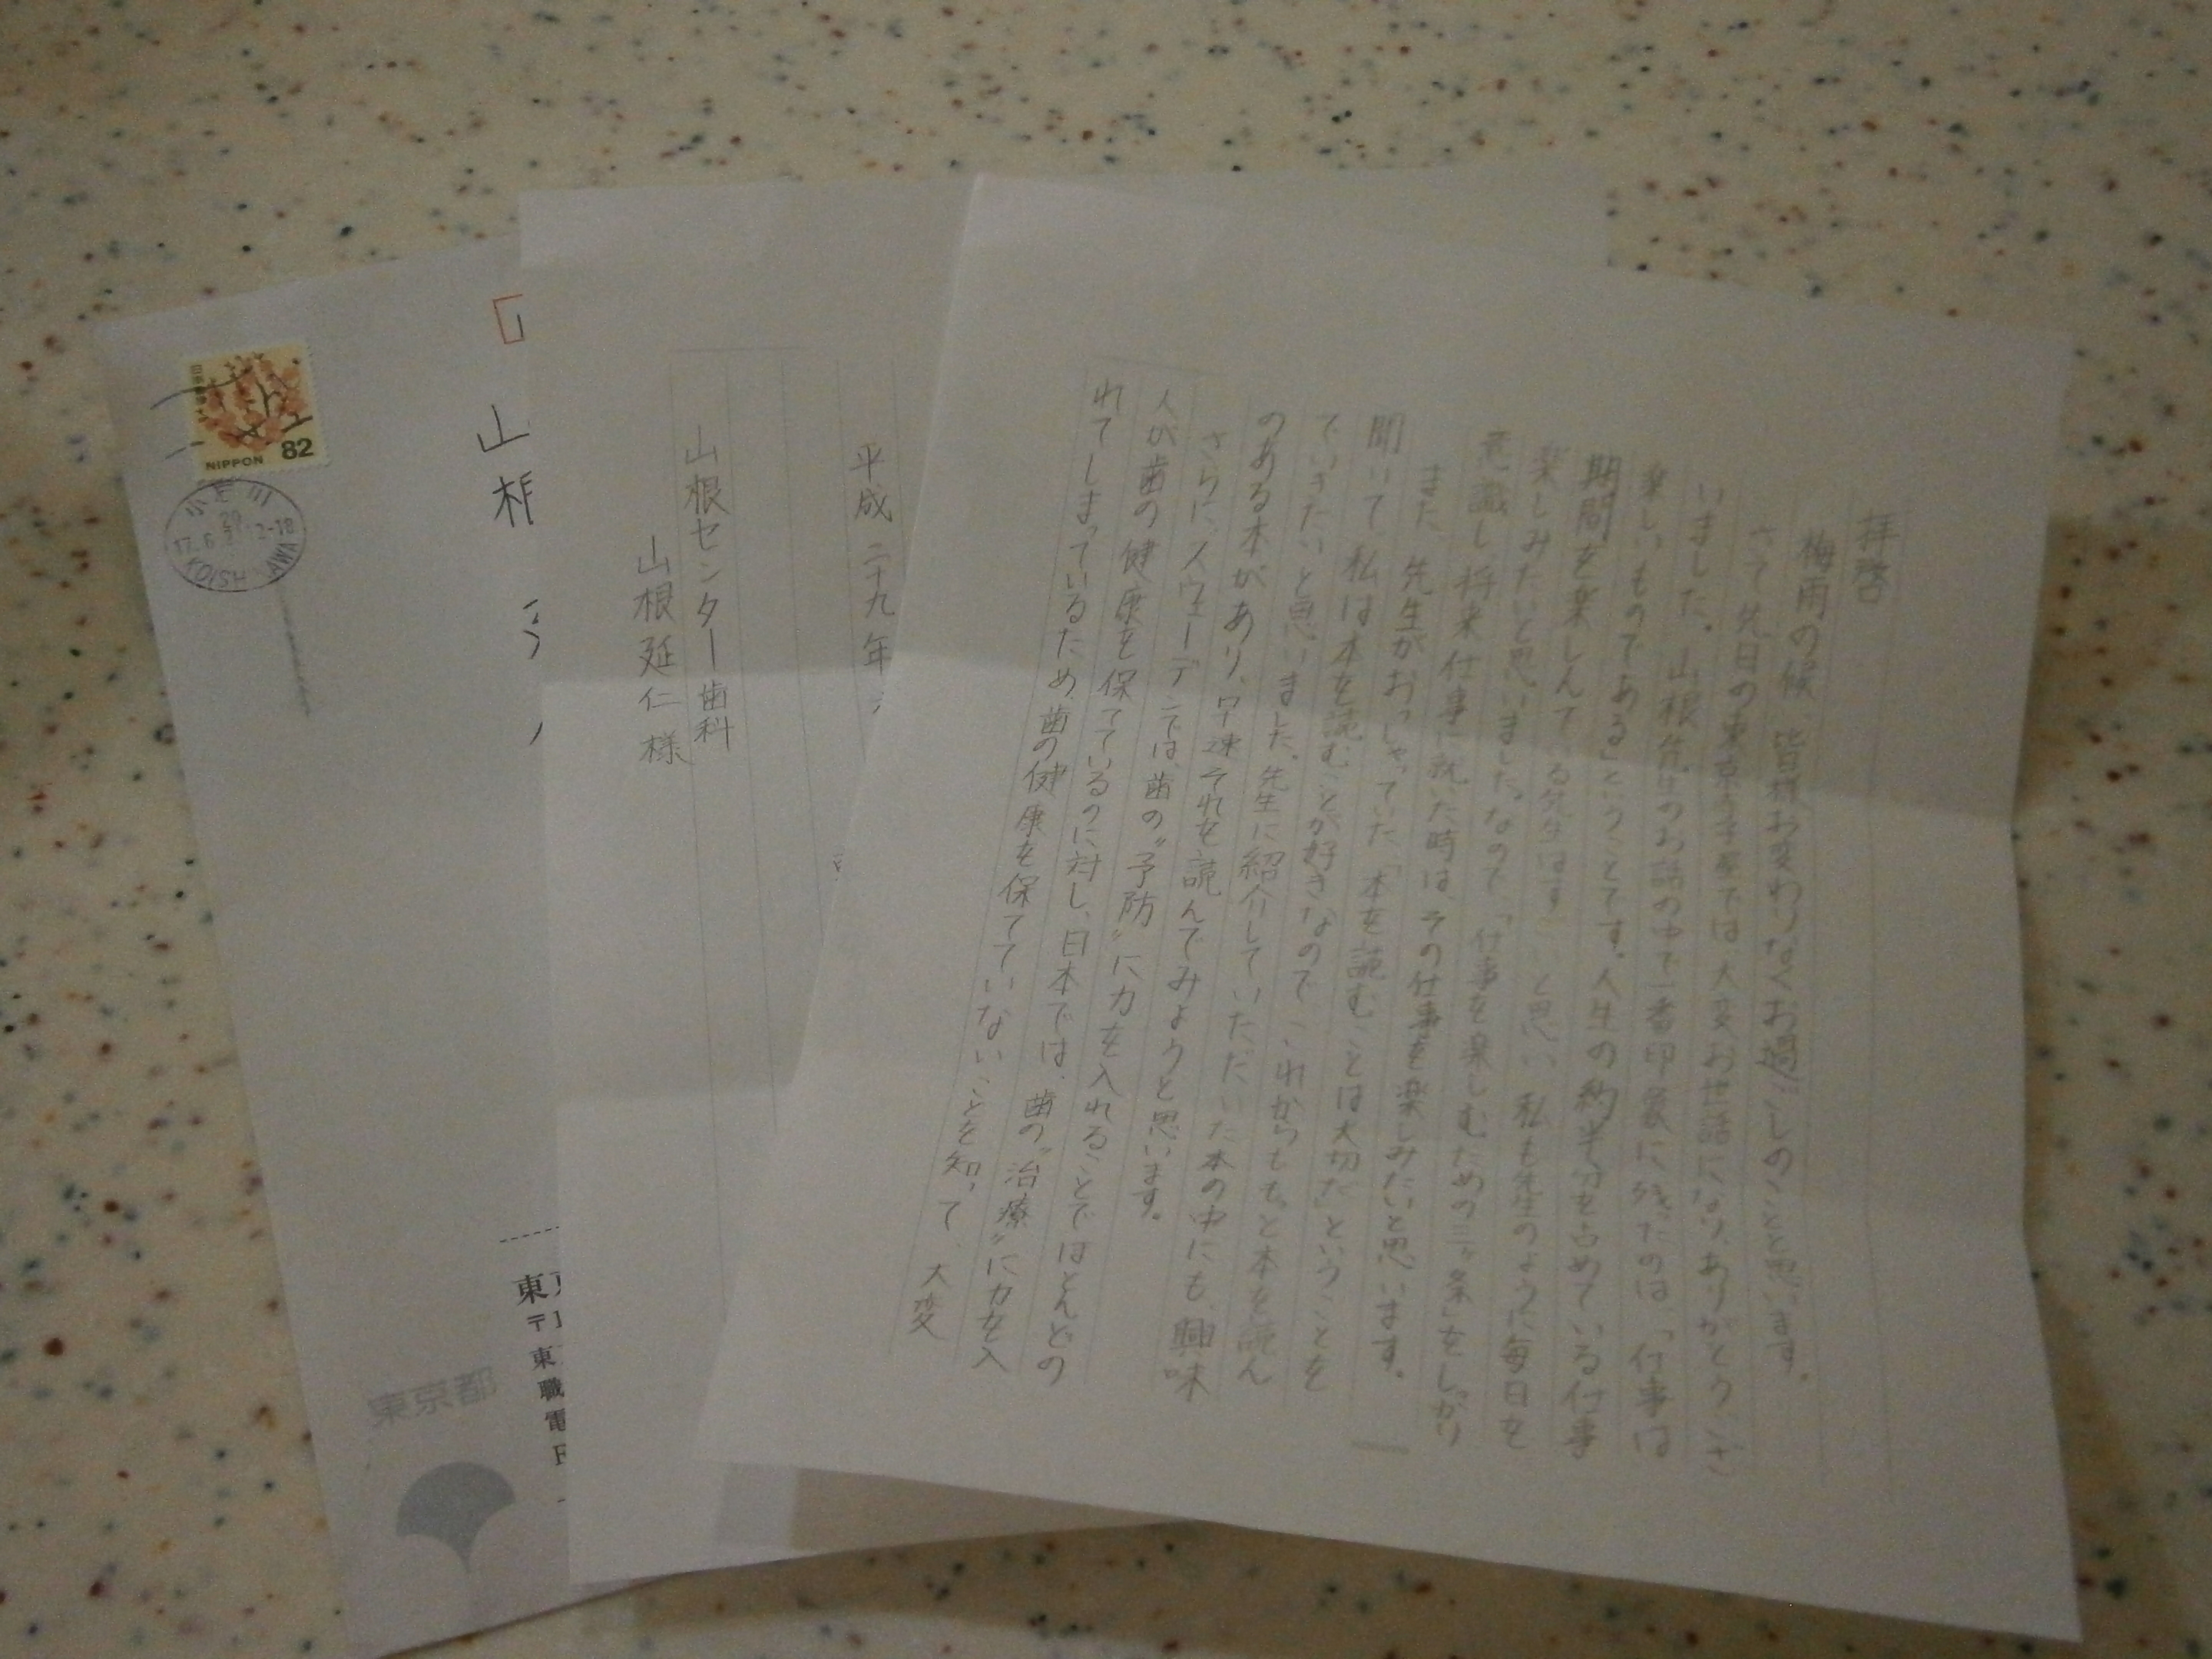 拝啓
梅雨の候、皆様お変わりなくお過ごしのことと思います。
さて先日の東京では大変お世話になり、ありがとうござ
いました。山根先生のお話の中で一番印象に残ったのは、「仕事は
楽しいものである」ということです。人生の約半分を占めている仕事
期間を楽しんでる先生はすごいと思い、私も先生のように毎日を
楽しみたいと思いました。なので、「仕事を楽しむための三ヶ条」をしっかり
意識し、将来仕事に就いた時は、その仕事を楽しみたいと思います。
また、先生がおっしゃっていた「本を読むことは大切だ」ということを
聞いて、私は本を読むことが好きなので、これからももっと本を読ん
でいきたいと思いました。先生に紹介していただいた本の中にも、興味
のある本があり、早速それを読んでみようと思います。
さらに、スウェーデンでは、歯の〝予防〟に力を入れることでほとんどの
人が歯の健康を保てているのに対し、日本では、歯の〝治療〟に力を入
れてしまっているため、歯の健康を保てていないことを知って、大変
平成二十九年
山根センター歯科
山根延仁様
山
日本郵便
82
NIPPON
小石川
17.6
KOISH AWA
東
〒1
東
職
電
F
東京都